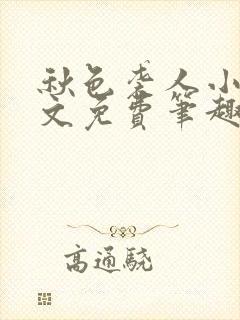 秋色袭人小
文免费笔趣
高通骁